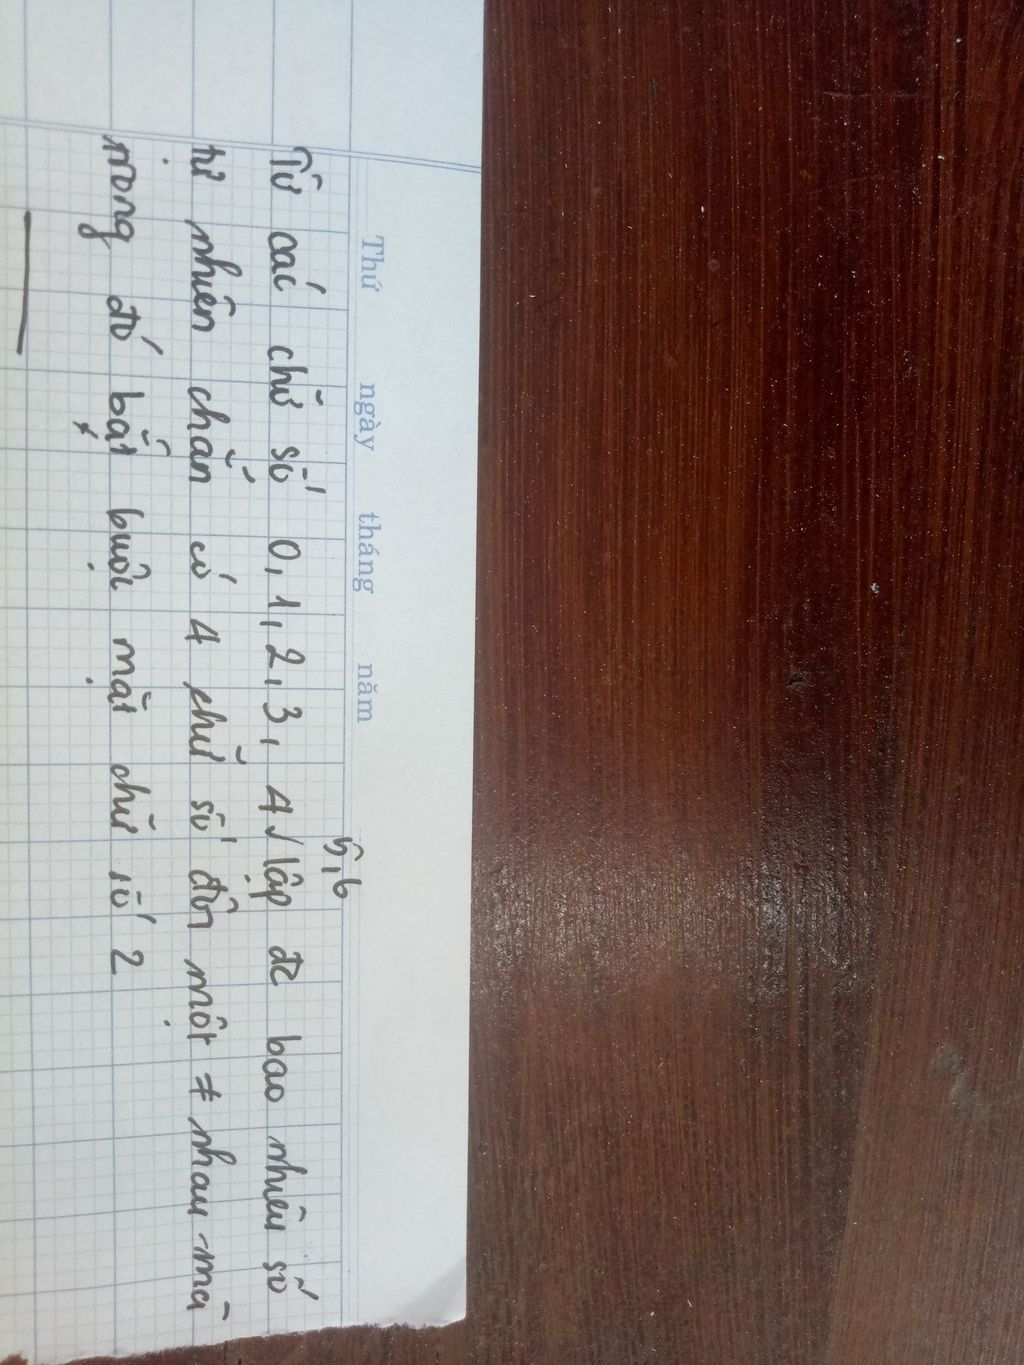 Thứ ngày tháng năm
5,6
Từ các chữ số 0,1,2,3,4 √ lập đc bao nhiêu số
tự nhiên chẵn có 4 chữ số đôi một ≠ nhau mà
trong đó bắt buộc mặt chữ số 2